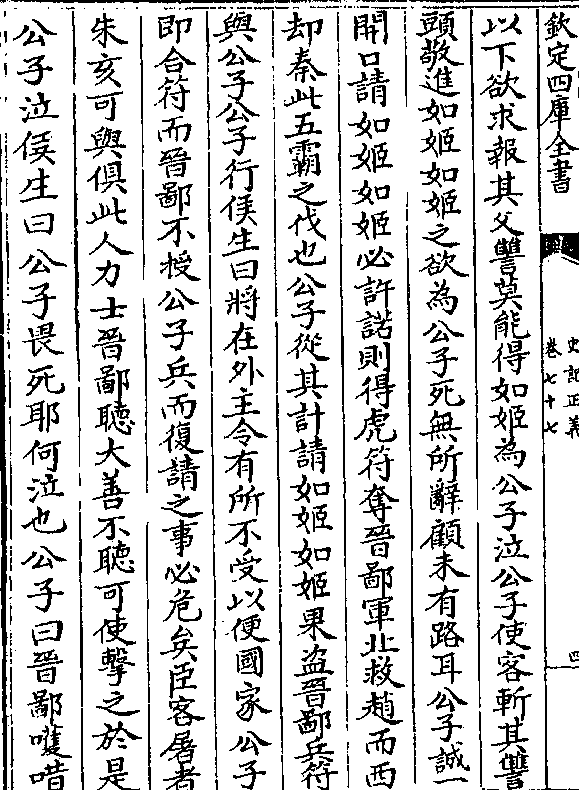 欽定四庫全書
史記正義
卷七十七
四
以下欲求報其父讐莫能得如姬為公子泣公子使客斬其讐
頭敬進如姬如姬之欲為公子死無所辭顧未有路耳公子誠一
開口請如姬如姬必許諾則得虎符奪晉鄙軍北救趙而西
却秦此五霸之伐也公子從其計請如姬如姬果盜晉鄙兵符
與公子公子行侯生曰將在外主令有所不受以便國家公子
即合符而晉鄙不授公子兵而復請之事必危矣臣客屠者
朱亥可與俱此人力士晉鄙聽大善不聽可使擊之於是
公子泣侯生曰公子畏死耶何泣也公子曰晉鄙嚄唶